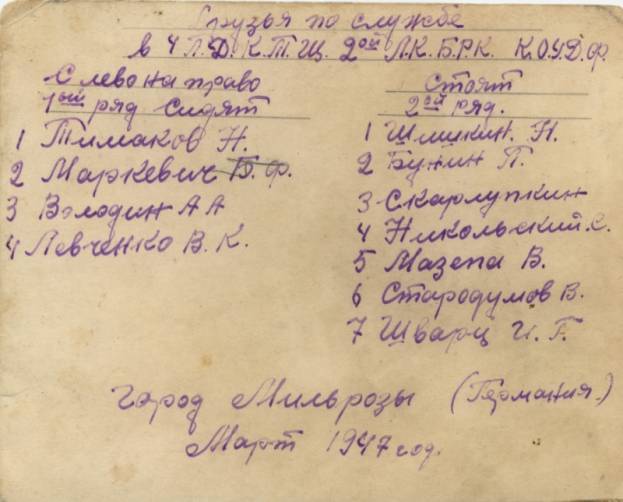 Друзья по службе
в 4 П.Д.К.Т.Щ. 2ой Л.К.Б.Р.К. К.О.У.Д.Ф.
Слево на право
1ый ряд сидят
1 Тимаков Н.
2 Маркевич Б.Ф.
3 Володин А А
4 Левченко В.К.
Стоят
2ой ряд.
1 Шлыкин. Н.
2 Бунин П.
3 Скарлупкин
4 Никольский.С.
5 Мазепа В.
6 Стародумов В.
7 Шварц И.Г.
город Мильрозы (Германия.)
Март 1947 год.